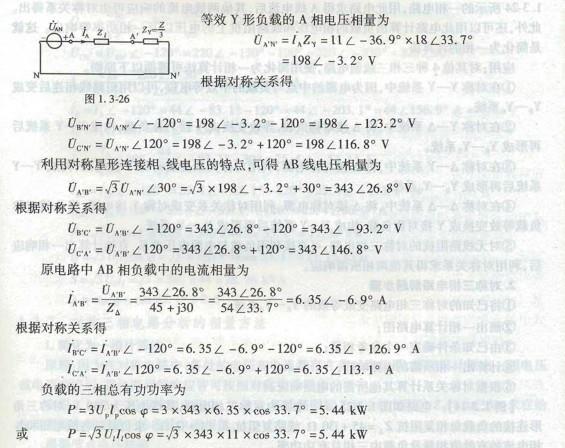 等效 Y 形负载的 A 相电压相量为
U̇AN
+A
İA
Zl
A'
ZY=Z/3
N
N'
图 1.3-26
U̇A'N' = İAZY = 11∠-36.9° × 18∠33.7°
= 198∠-3.2° V
根据对称关系得
U̇B'N' = U̇A'N'∠-120° = 198∠-3.2°-120° = 198∠-123.2° V
U̇C'N' = U̇A'N'∠120° = 198∠-3.2°+120° = 198∠116.8° V
利用对称星形连接相、线电压的特点,可得 AB 线电压相量为
U̇A'B' = √3 U̇A'N'∠30° = √3 × 198∠-3.2°+30° = 343∠26.8° V
根据对称关系得
U̇B'C' = U̇A'B'∠-120° = 343∠26.8°-120° = 343∠-93.2° V
U̇C'A' = U̇A'B'∠120° = 343∠26.8°+120° = 343∠146.8° V
原电路中 AB 相负载中的电流相量为
İA'B' = U̇A'B'/ZΔ = 343∠26.8°/45+j30 = 343∠26.8°/54∠33.7° = 6.35∠-6.9° A
根据对称关系得
İB'C' = İA'B'∠-120° = 6.35∠-6.9°-120° = 6.35∠-126.9° A
İC'A' = İA'B'∠120° = 6.35∠-6.9°+120° = 6.35∠113.1° A
负载的三相总有功功率为
P = 3UpIpcos φ = 3×343×6.35×cos 33.7° = 5.44 kW
或 P = √3 UlIlcos φ = √3×343×11×cos 33.7° = 5.44 kW